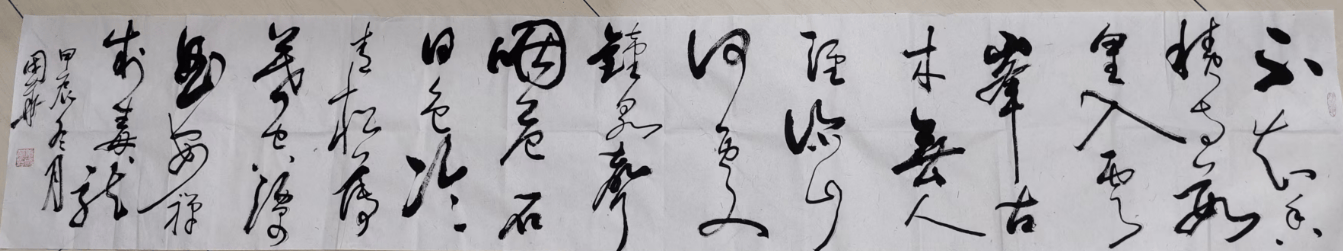 不知香
積寺數
里入雲
峯古
木無人
徑深山
何處
鐘泉聲
咽危石
日色冷
青松薄
暮空潭
曲安禪
制毒龍
甲辰冬月